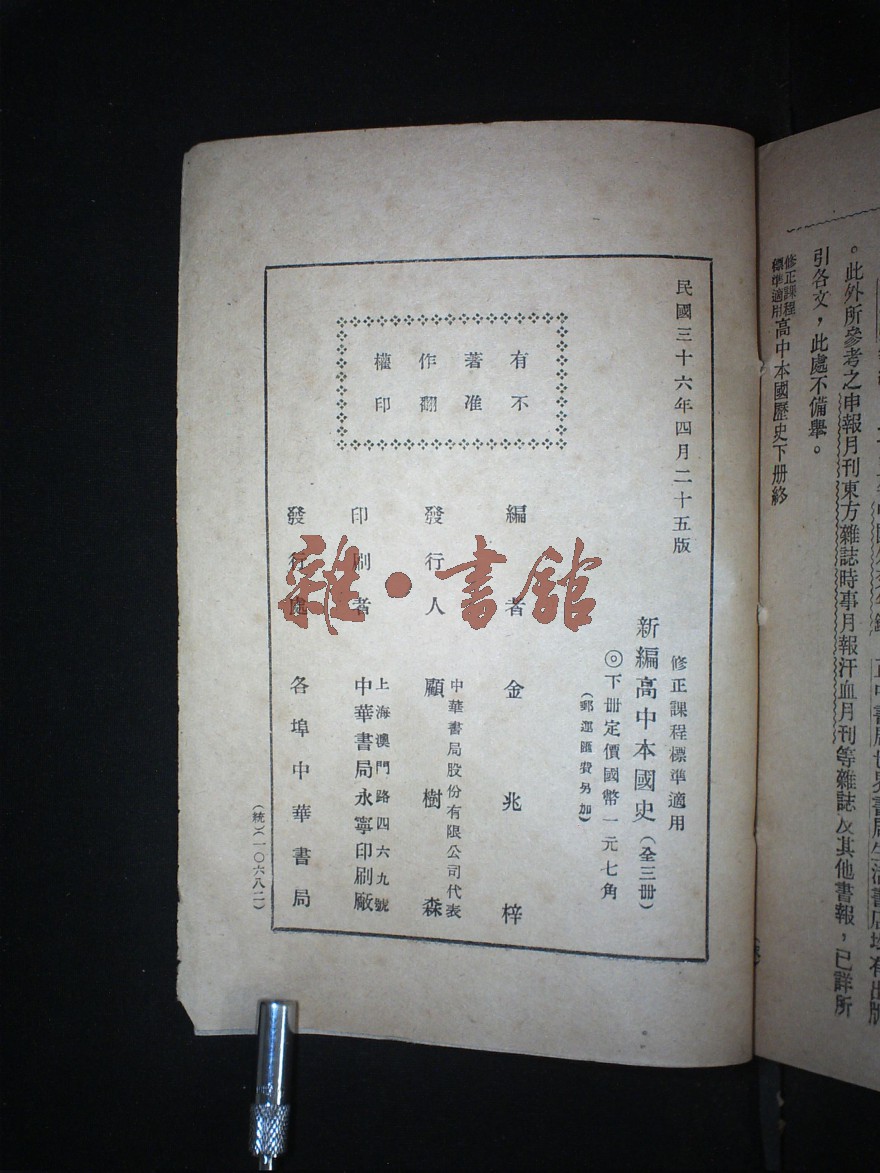 。此外所參考之申報月刊東方雜誌時事月報汗血月刊等雜誌及其他書報，已詳所
引各文，此處不備舉。
修正課程
標準適用
高中本國歷史下册終
民國三十六年四月二十五版
修正課程標準適用
新編高中本國史（全三册）
◎下册定價國幣一元七角
（郵運匯費另加）
有著作權
不准翻印
編者 金兆梓
發行人 中華書局股份有限公司代表
顧樹森
印刷者 上海澳門路四六九號
中華書局永寧印刷廠
發行處 各埠中華書局
（統）（一〇六八二）
雜·書館